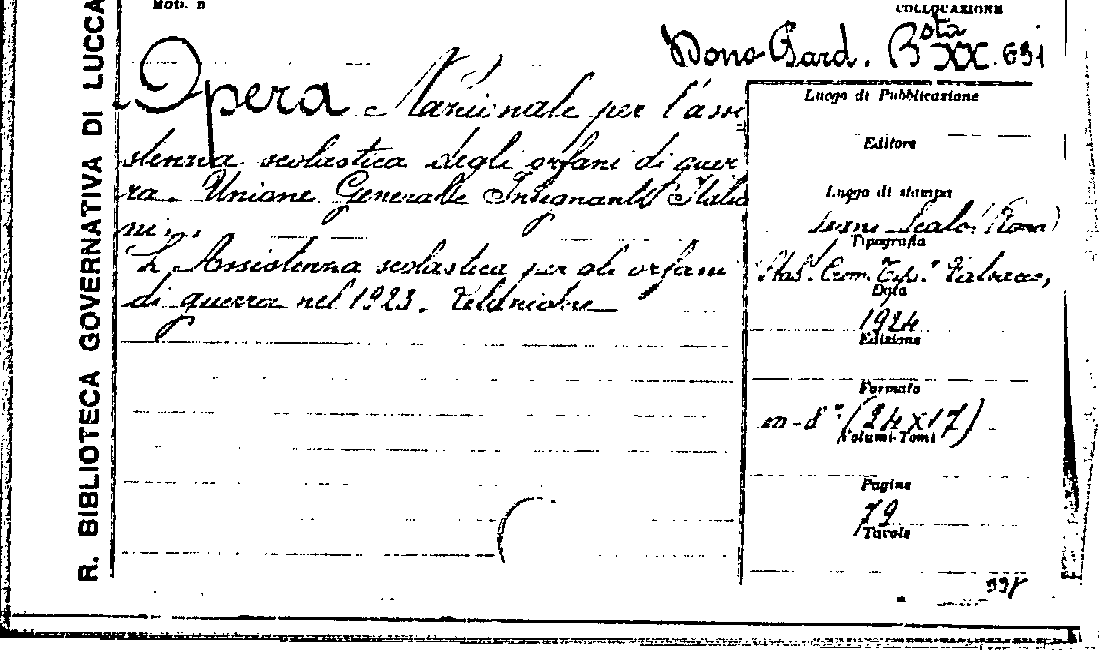 Mod. n
COLLOCAZIONE
Dono Bard. Bsta XX. 631
R. BIBLIOTECA GOVERNATIVA DI LUCCA
Opera Nazionale per l'assi
stenza scolastica degli orfani di guer
ra. Unione Generale Insegnanti Italia
ni.
L'Assistenza scolastica per gli orfani
di guerra nel 1923.
Luogo di Pubblicazione
Editore
Luogo di stampa
Scalo (Roma)
Tipografia
Stab. Tip.
Data
1924
Edizione
Formato
in-8° (24x17)
Volumi-Tomi
Pagine
79
Tavole